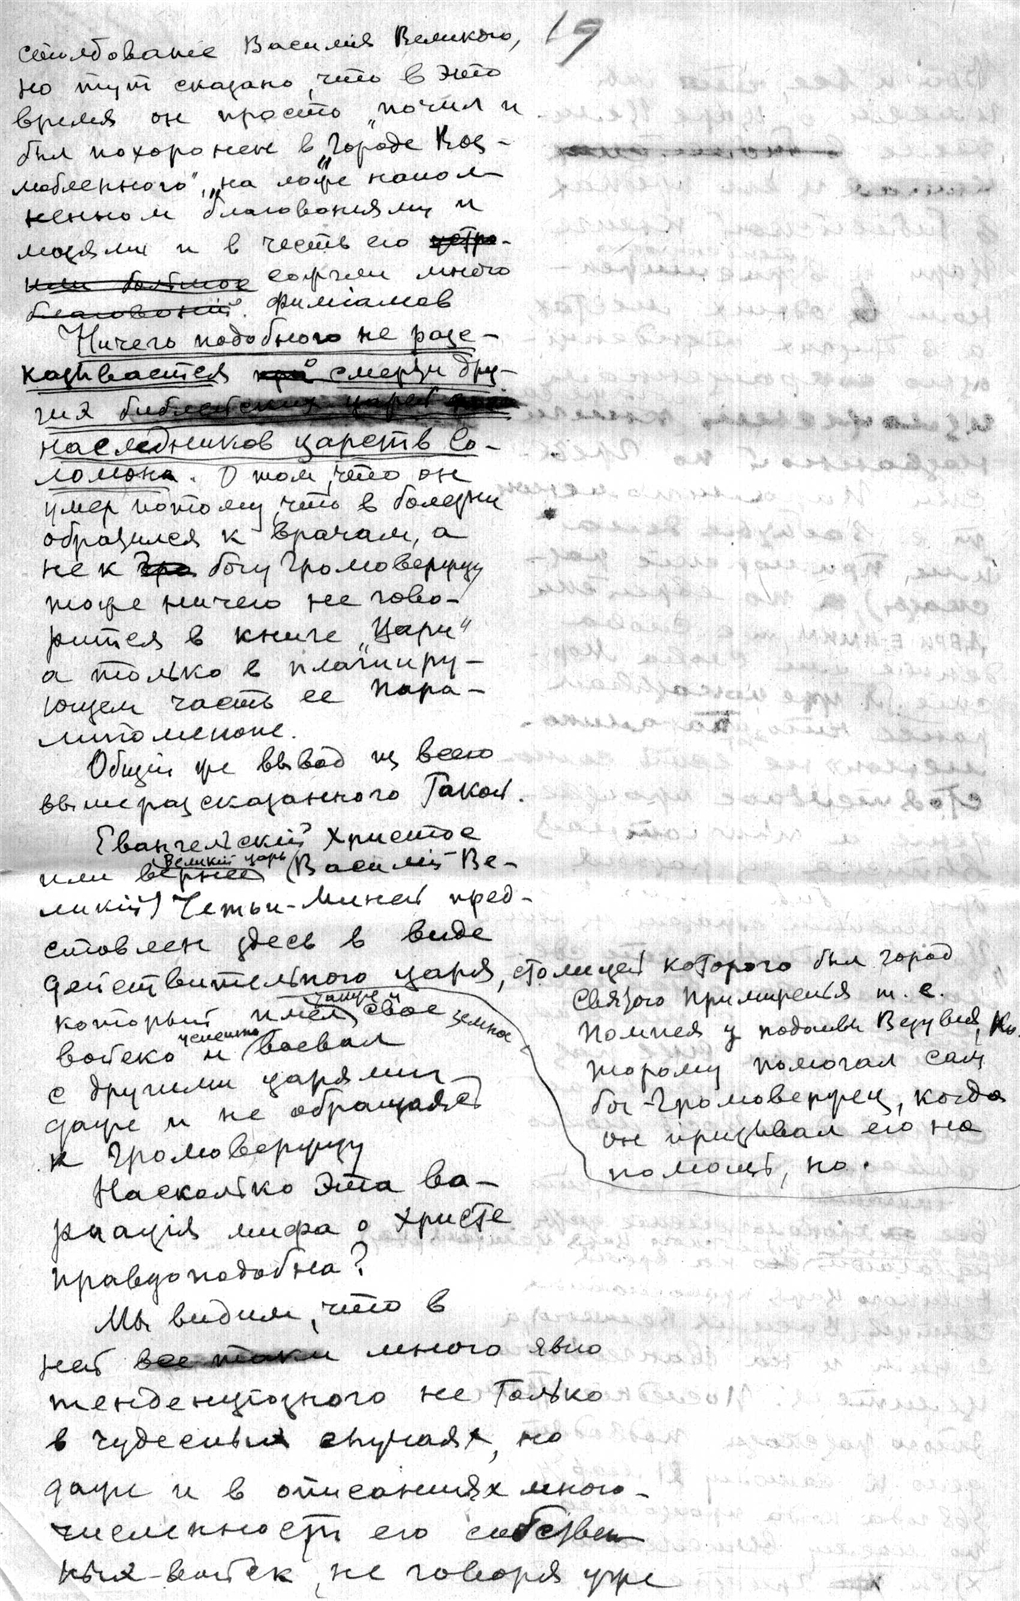 19
столбование Василия Великого,
но тут сказано, что в это
время он просто „почил и
был похоронен в „городе Воз-
любленного", „на ложе напол-
ненном благовониями и
мазями и в честь его устро-
или большое сожгли много
благовоний. фимиамов
Ничего подобного не расс-
казывается при смерти дру-
гих библейских царей
наследников царств Со-
ломона. О том, что он
умер потому, что в болезни
обратился к врачам, а
не к Гро богу Громовержцу
тоже ничего не гово-
рится в книге „Цари"
а только в плагииру-
ющем часть ее Пара-
липоменоне.
Общий же вывод из всего
вышерассказанного такой.
Евангельский Христос
великий царь
или вернее (Василий Ве-
ликий) Четьи-Миней пред-
ставлен здесь в виде
действительного царя, столицей которого был город
святого Примиренья т. е.
Помпея у подошвы Везувия, ко-
торому помогал сам
бог-Громовержец, когда
он призывал его на
помощь, но.
который имел свое земное
войско и успешно воевал
с другими царями
даже и не обращаясь
к Громовержцу
Насколько эта ва-
риация мифа о Христе
правдоподобна?
Мы видим, что в
ней все таки много явно
тенденциозного не только
в чудесных случаях, но
даже и в описаниях много-
численности его собствен-
ных войск, не говоря уже